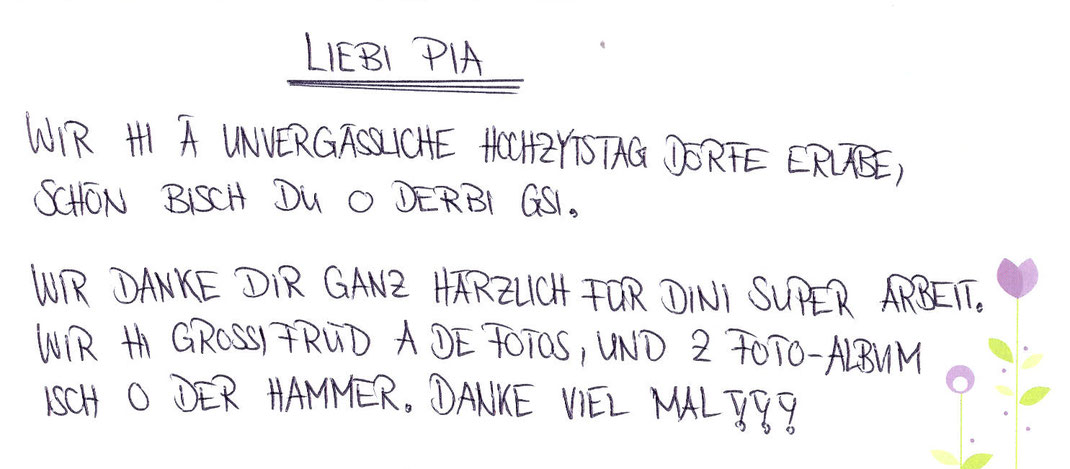 LIEBI PIA
WIR HI Ä UNVERGÄSSLICHE HOCHZYTSTAG DÖRFE ERLÄBE,
SCHÖN BISCH DU O DERBI GSI.
WIR DANKE DIR GANZ HÄRZLICH FÜR DINI SUPER ARBEIT.
WIR HI GROSSI FRÜD A DE FOTOS, UND Z FOTO-ALBUM
ISCH O DER HAMMER. DANKE VIEL MAL!!!